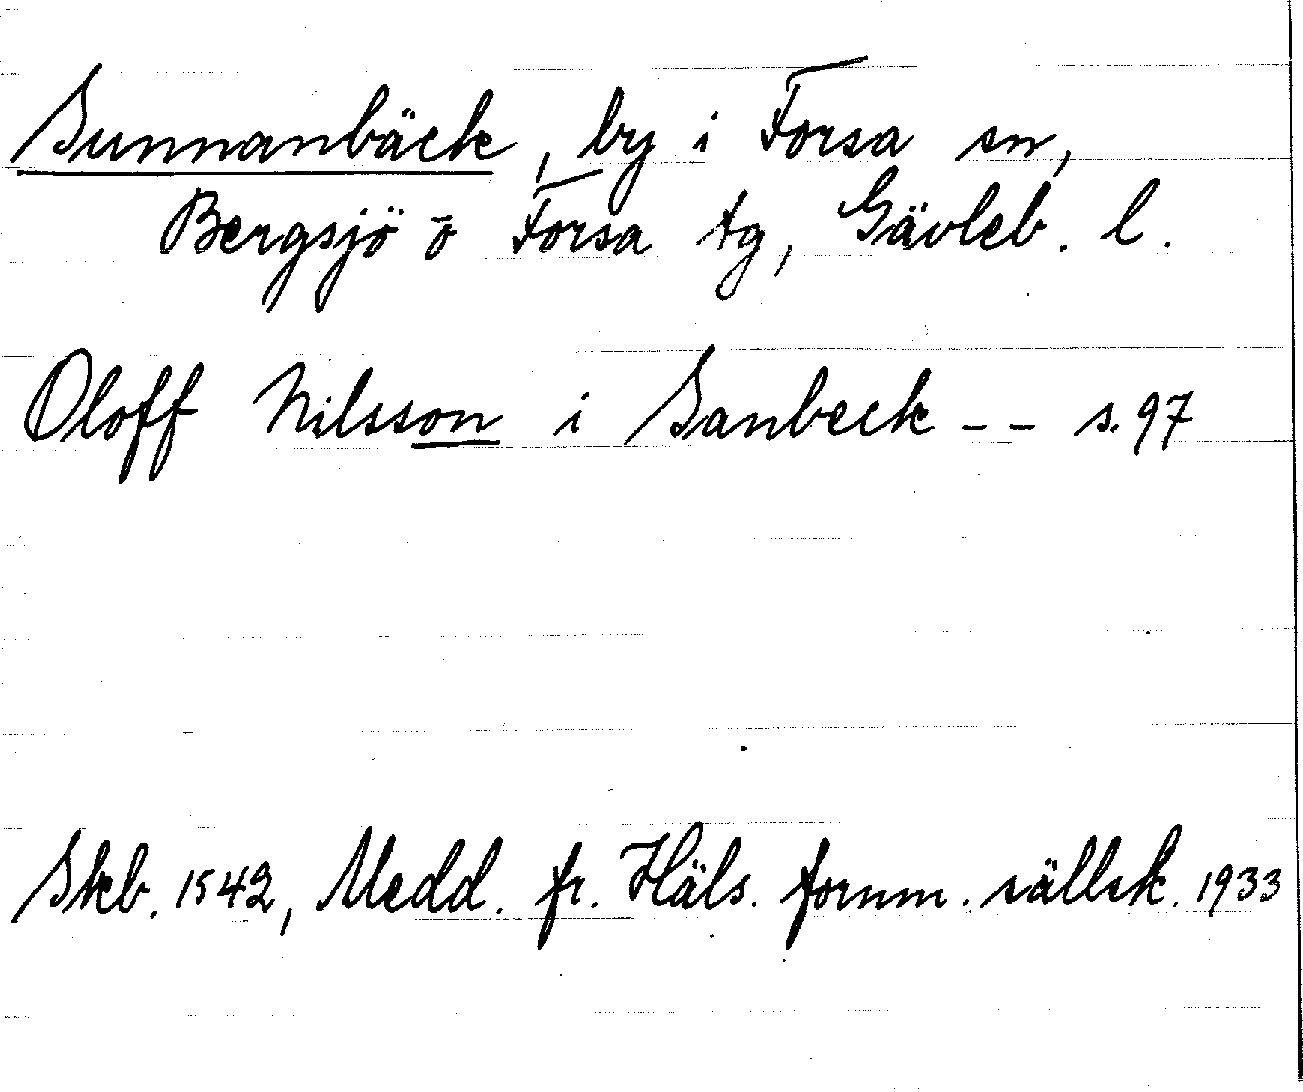 Sunnanbäck, by i Forsa sn,
Bergsjö o Forsa tg, Gävleb. l.
Oloff Nilsson i Sanbeck -- s. 97
Skb. 1542, Medd. fr. Häls. fornm. sällsk. 1933